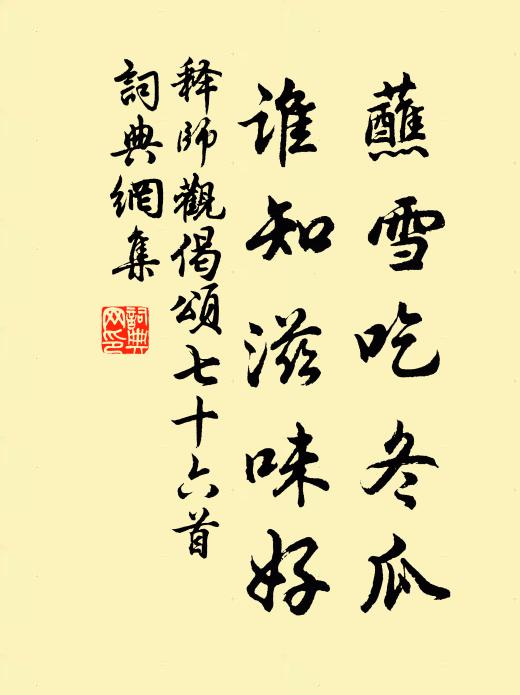 蘸雪吃冬瓜
谁知滋味好
释师觀偈頌七十六首
詞典網集
詞典
网印